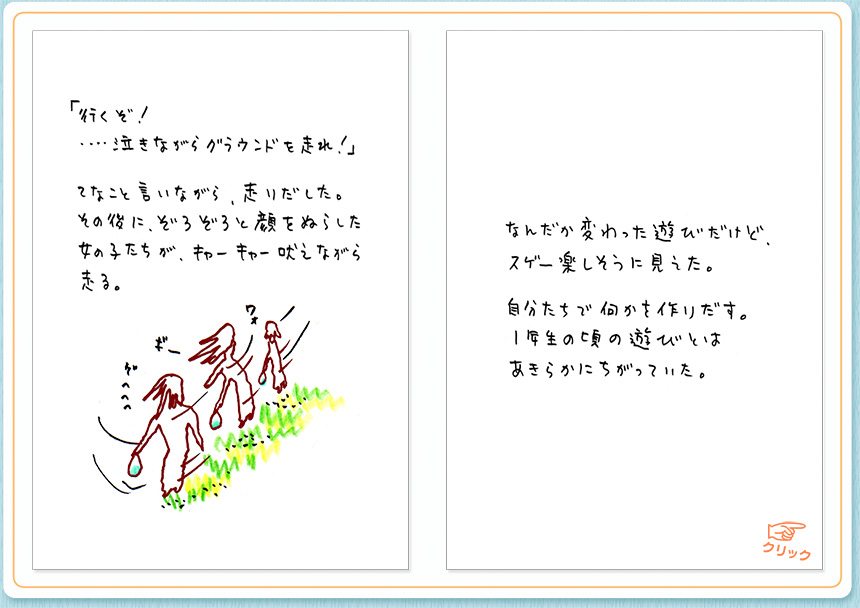 「行くぞ!
‥‥泣きながらグラウンドを走れ!」
てなこと言いながら、走りだした。
その後に、ぞろぞろと顔をぬらした
女の子たちが、キャーキャー吠えながら
走る。
ワォ
ギー
ゲヘヘヘ
なんだか変わった遊びだけど、
スゲー楽しそうに見えた。
自分たちで何かを作りだす。
1年生の頃の遊びとは
あきらかにちがっていた。
クリック